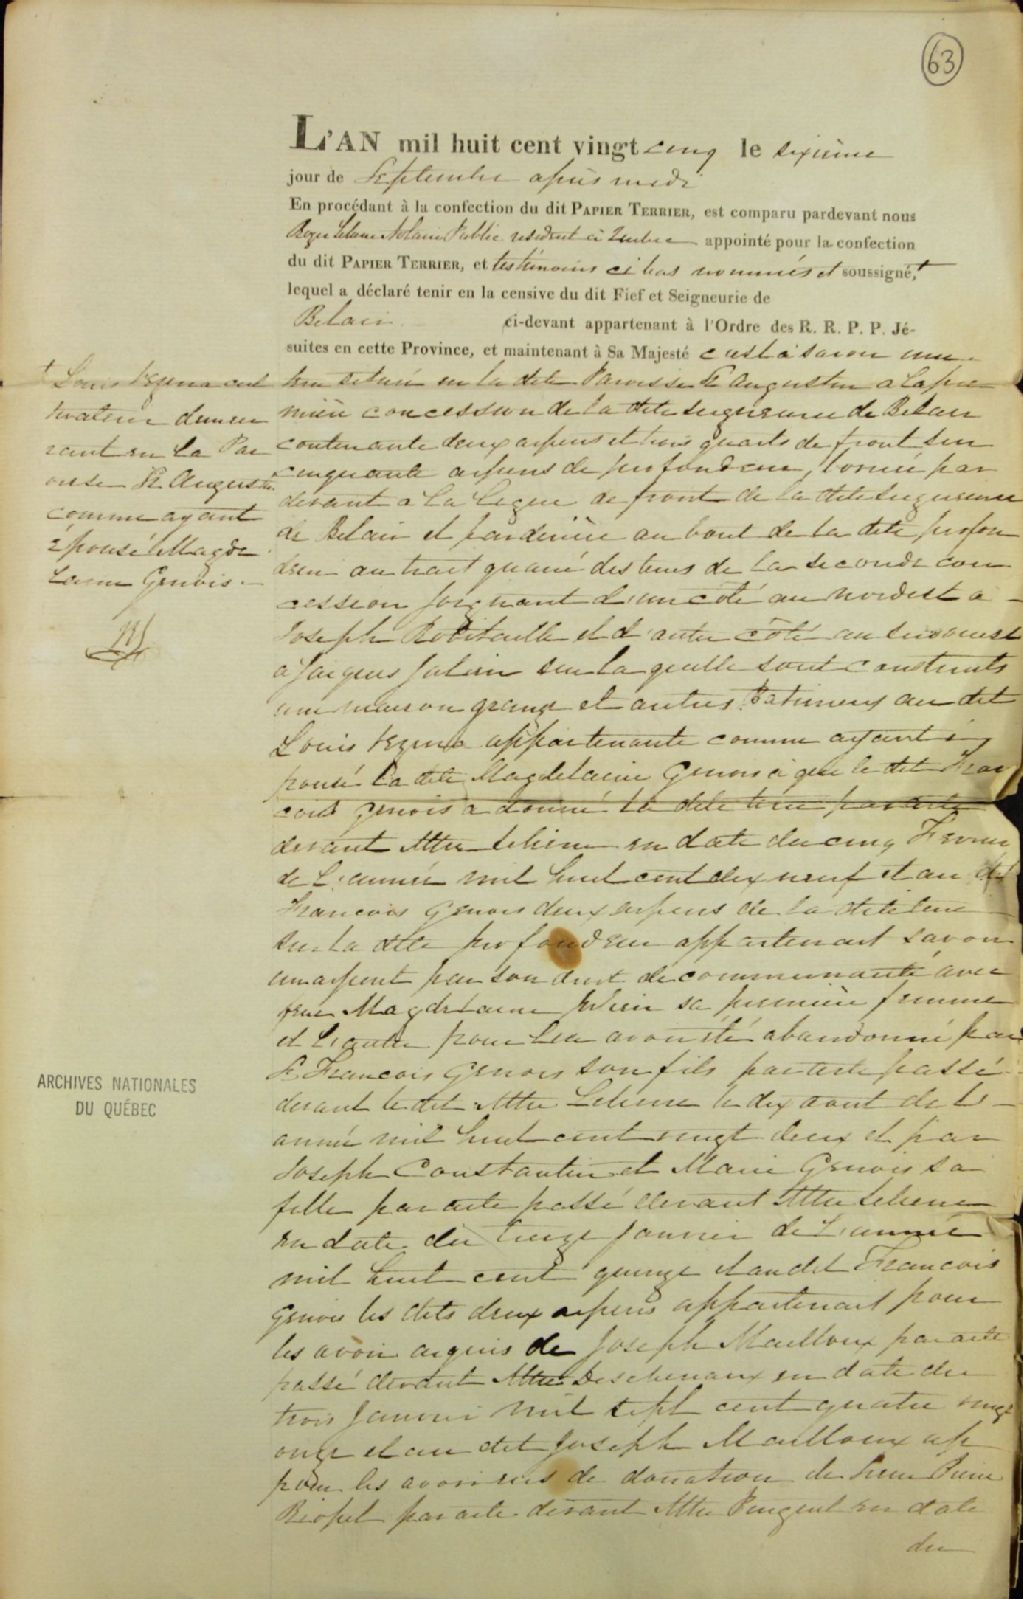 63
L'AN mil huit cent vingt cinq le sixieme
jour de Septembre apres midi
En procédant à la confection du dit PAPIER TERRIER, est comparu pardevant nous
Roger Lelievre Notaire Public residant à Quebec appointé pour la confection
du dit PAPIER TERRIER, et témoins ci bas nommés et soussigné, +
lequel a déclaré tenir en la censive du dit Fief et Seigneurie de
Belair ci-devant appartenant à l'Ordre des R. R. P. P. Jé-
suites en cette Province, et maintenant à Sa Majesté c'est à savoir une
+ Louis Vezina cul
tivateur demeu
rant en la Par
oisse St Augustin
comme ayant
épousé Magde
laine Genois
terre située en la dite Paroisse St Augustin a la pre
mière concession de la dite seigneurie de Belair
contenante deux arpens et trois quarts de front sur
cinquante arpens de profondeur, bornée par
devant a la ligne de front de la dite seigneurie
de Belair et par derrière au bout de la dite profon
deur au trait quarré des terres de la seconde con
cession joignant d'un côté au nordest a
Joseph Robitaille et d'autre côté au surouest
a Jacques Jul sur laquelle sont construits
une maison grange et autres batimens au dit
Louis Vezina appartenante comme ayant é
pousé la dite Magdelaine Genois à qui le dit Fran
cois Genois a donné la dite terre par acte
devant Mtre Lelievre en date du cinq Fevrier
de l'année mil huit cent dix neuf et au dit
Francois Genois deux arpens de la dite terre
sur la dite profondeur appartenant savoir
un arpent par son droit de communauté avec
feue Magdelaine sa première femme
et l'autre pour lui avoir été abandonné par
Fr. Francois Genois son fils par acte passé
devant le dit Mtre Lelievre le dix aout de l'
année mil huit cent vingt deux et par
Joseph Constantin et Marie Genois sa
fille par acte passé devant Mtre Lelievre
en date du treize Janvier de l'année
mil huit cent quinze et au dit Francois
Genois les dits deux arpens appartenant pour
les avoir acquis de Joseph Mailloux par acte
passé devant Mtre Deschenaux en date du
trois Janvier mil sept cent quatre vingt
onze et au dit Joseph Mailloux ap
pour les avoir eus de donation de Pierre
Riopel par acte devant Mtre Pinguet en date
du
ARCHIVES NATIONALES
DU QUÉBEC